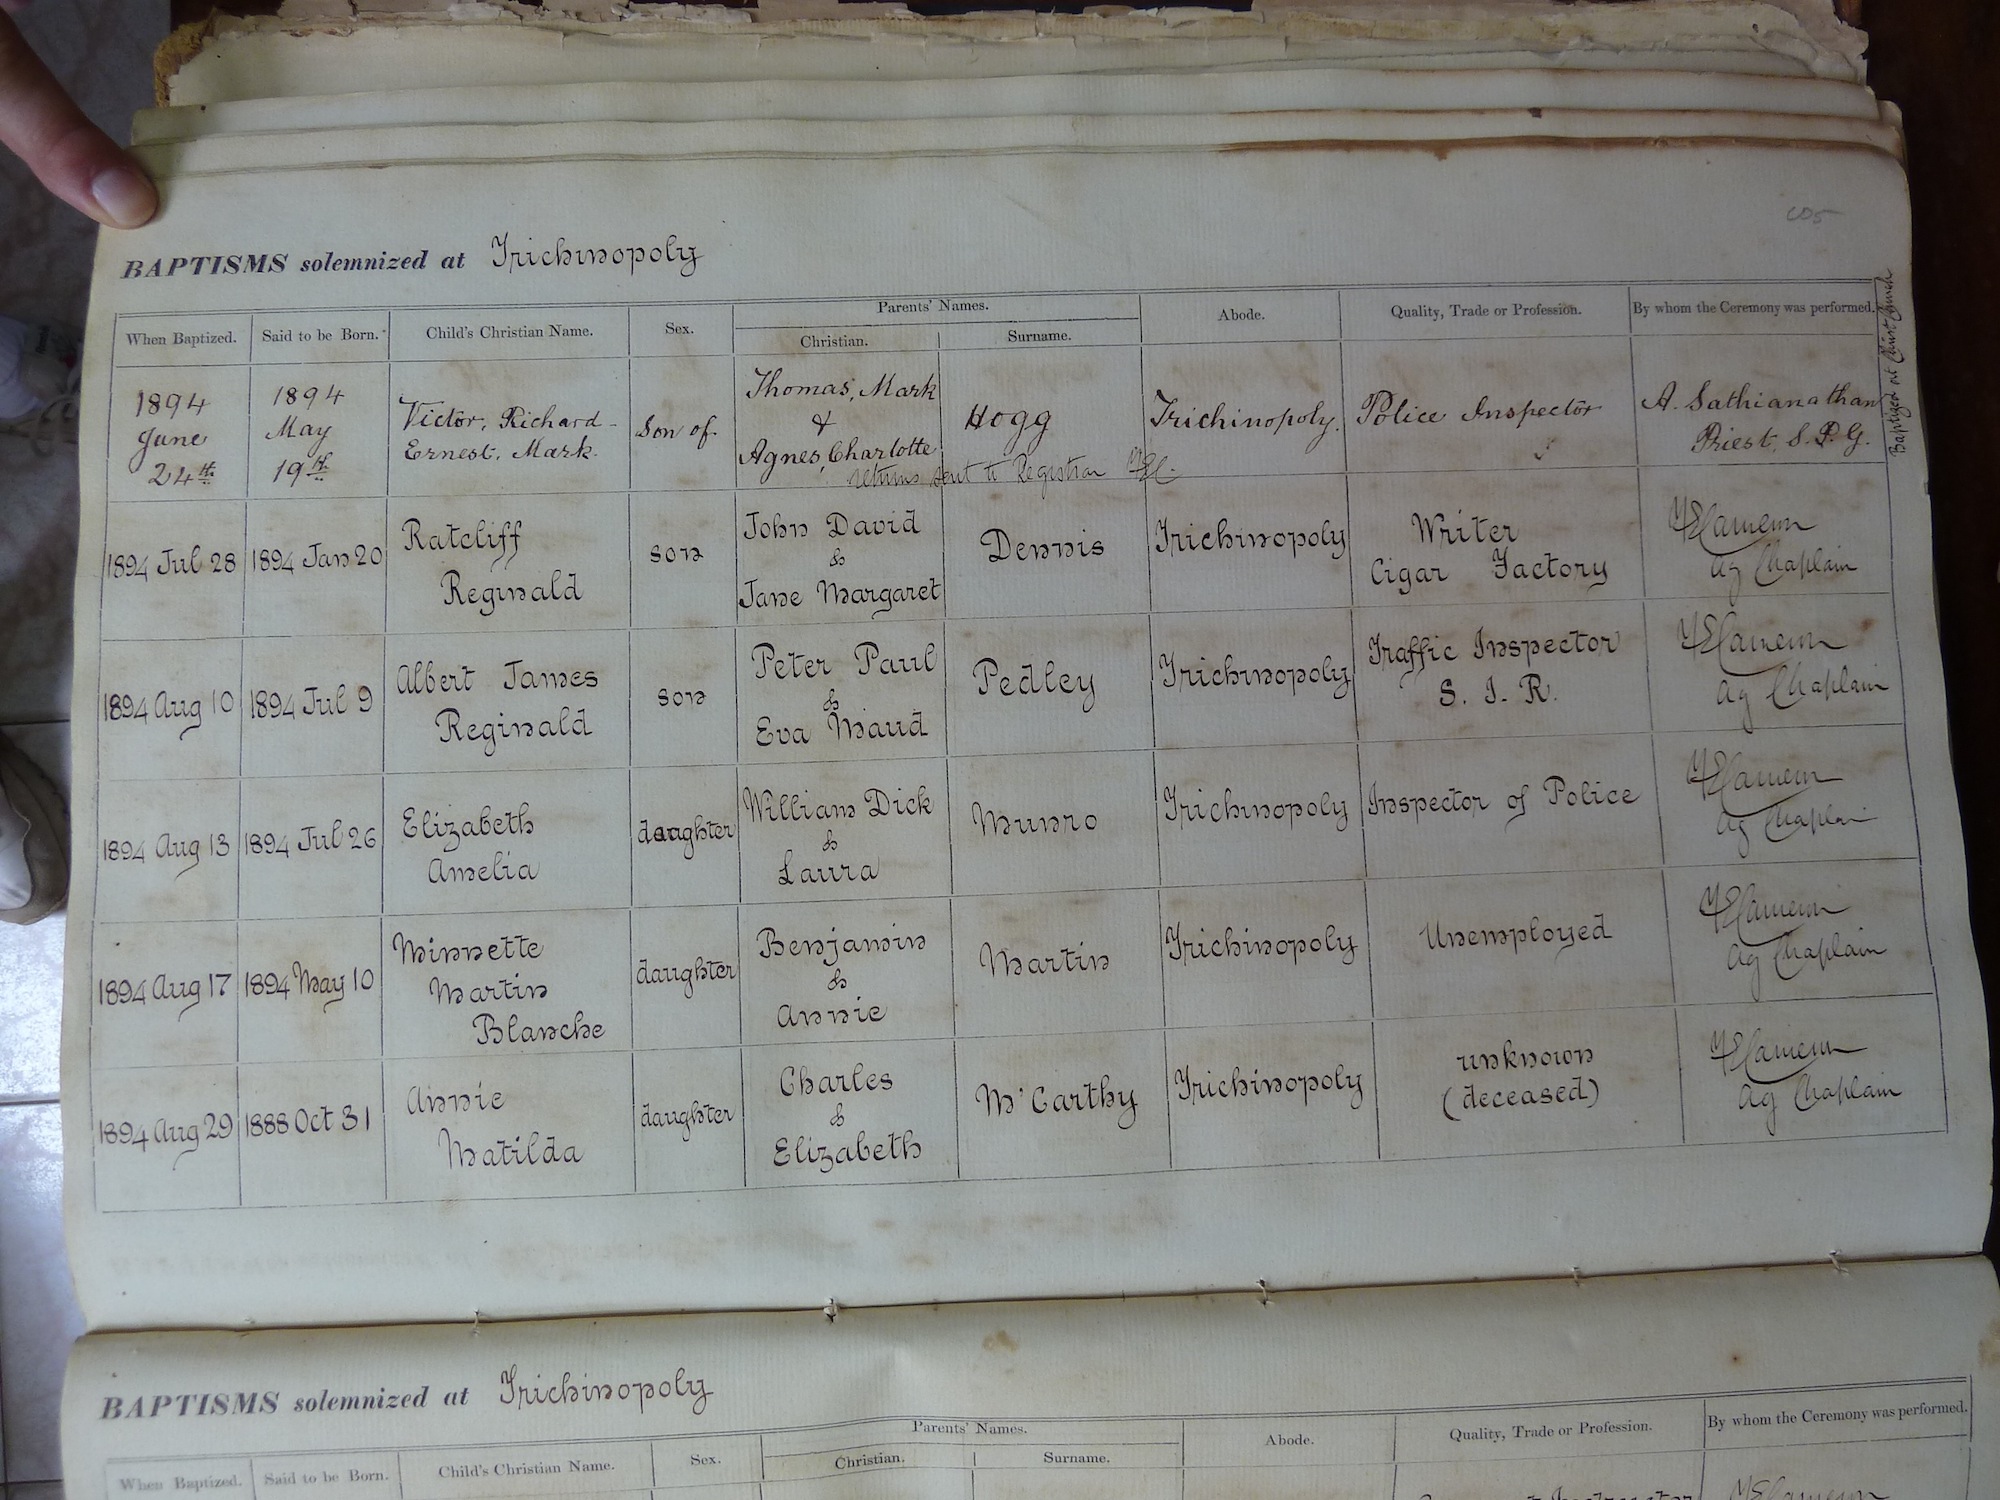 BAPTISMS solemnized at Trichinopoly
When Baptized. Said to be Born. Child's Christian Name. Sex. Parents' Names. Abode. Quality, Trade or Profession. By whom the Ceremony was performed.
Christian. Surname.
Baptized at Christ Church
1894 June 24th
1894 May 19th
Victor, Richard
Ernest, Mark.
Son of
Thomas, Mark
&
Agnes, Charlotte
Hogg
Trichinopoly.
Police Inspector
A. Sathianathan
Priest, S. P. G.
returns sent to Registrar
1894 Jul 28
1894 Jan 20
Ratcliff
Reginald
son
John David
&
Jane Margaret
Dennis
Trichinopoly
Writer
Cigar Factory
Ag Chaplain
1894 Aug 10
1894 Jul 9
Albert James
Reginald
son
Peter Paul
&
Eva Maud
Pedley
Trichinopoly
Traffic Inspector
S. I. R.
Ag Chaplain
1894 Aug 13
1894 Jul 26
Elizabeth
Amelia
daughter
William Dick
&
Laura
Munro
Trichinopoly
Inspector of Police
Ag Chaplain
1894 Aug 17
1894 May 10
Minnette
Martin
Blanche
daughter
Benjamin
&
Annie
Martin
Trichinopoly
Unemployed
Ag Chaplain
1894 Aug 29
1888 Oct 31
Annie
Matilda
daughter
Charles
&
Elizabeth
M'Carthy
Trichinopoly
unknown
(deceased)
Ag Chaplain
BAPTISMS solemnized at Trichinopoly
When Baptized. Said to be Born. Child's Christian Name. Sex. Parents' Names. Abode. Quality, Trade or Profession. By whom the Ceremony was performed.
Christian. Surname.